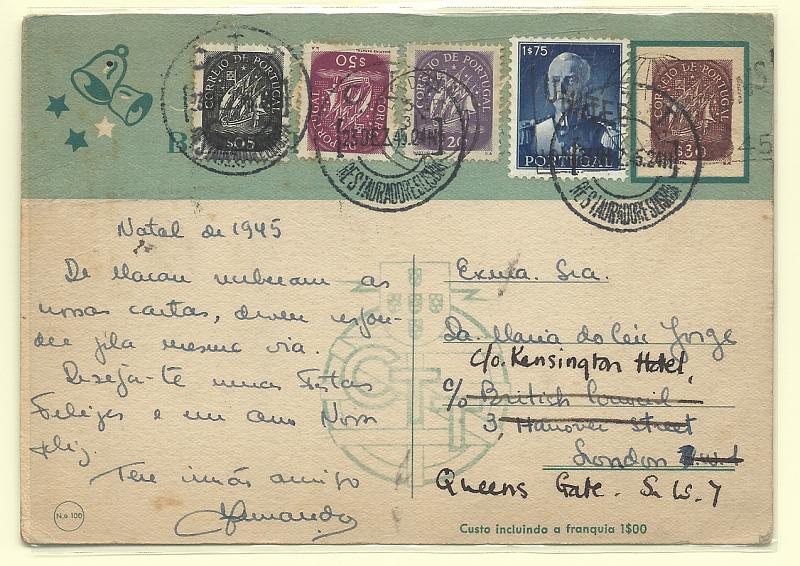 CORREIO DE PORTUGAL
$05
PORTUGAL
$50
CORREIO DE PORTUGAL
$20
1$75
PORTUGAL
CORREIO DE PORTUGAL
$30
B
25 DEZ.45.24H
RESTAURADORES LISBOA
RESTAURADORES LISBOA
Natal de 1945
De Macau receberam as
nossas cartas, devem respon-
der pela mesma via.
Deseja-te umas Festas
Felizes e um Ano Novo
feliz.
Teu irmão amigo
Armando
Exma. Sra.
Da. Maria do Céu Jorge
c/o. Kensington Hotel,
c/o British Council
3, Hanover Street
London
Queens Gate. S.W.7
CTT
N.o 100
Custo incluindo a franquia 1$00